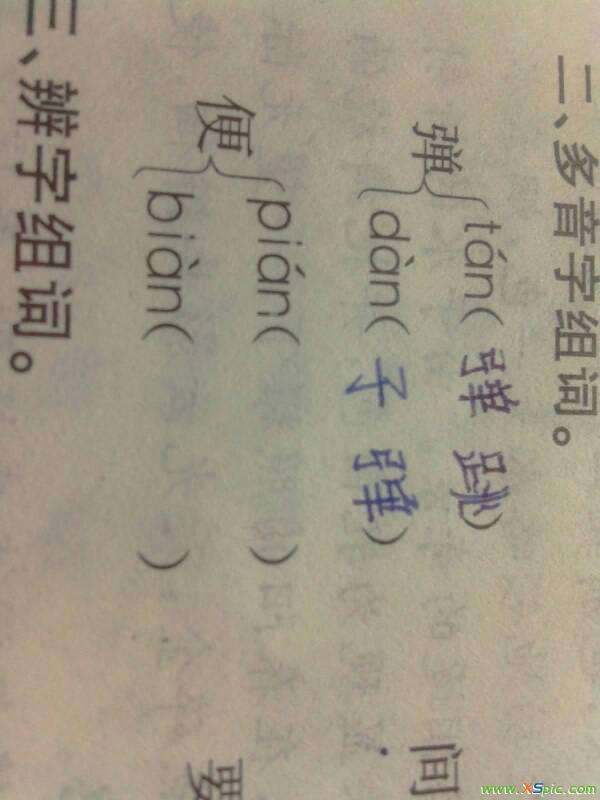 二、多音字组词。
tán(弹跳)
弹 间
dàn(子弹)
pián( )
便 要
biàn( )
三、辨字组词。
www.XSpic.com